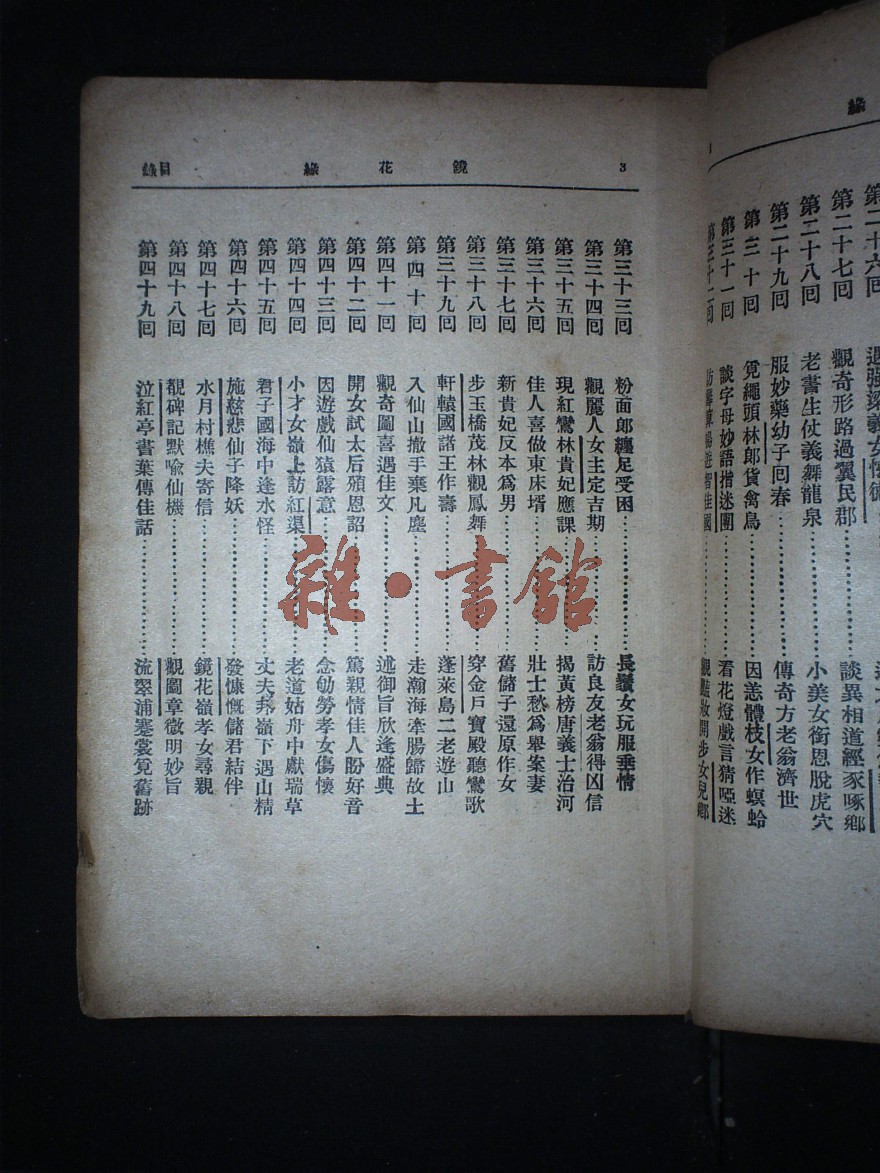 3 鏡花緣 目錄
第三十三回 粉面郎纏足受困……長鬚女玩服垂情
第三十四回 觀麗人女主定吉期……訪良友老翁得凶信
第三十五回 現紅鸞林貴妃應課……揭黃榜唐義士治河
第三十六回 佳人喜做東床壻……壯士愁為舉案妻
第三十七回 新貴妃反本為男……舊儲子還原作女
第三十八回 步玉橋茂林觀鳳舞……穿金戶寶殿聽鸞歌
第三十九回 軒轅國諸王作壽……蓬萊島二老遊山
第四十回 入仙山撤手棄凡塵……走瀚海牽腸歸故土
第四十一回 觀奇圖喜遇佳文……述御旨欣逢盛典
第四十二回 開女試太后頒恩詔……篤親情佳人盼好音
第四十三回 因遊戲仙猿露意……念劬勞孝女傷懷
第四十四回 小才女嶺上訪紅渠……老道姑舟中獻瑞草
第四十五回 君子國海中逢水怪……丈夫邦嶺下遇山精
第四十六回 施慈悲仙子降妖……發慷慨儲君結伴
第四十七回 水月村樵夫寄信……鏡花嶺孝女尋親
第四十八回 覩碑記默喻仙機……觀圖章微明妙旨
第四十九回 泣紅亭書葉傳佳話……流翠浦蹇裳覓舊跡
緣
第二十六回 遇强梁義女懷德
第二十七回 觀奇形路過翼民郡……談異相道經豕喙鄉
第二十八回 老書生仗義舞龍泉……小美女銜恩脫虎穴
第二十九回 服妙藥幼子回春……傳奇方老翁濟世
第三十回 覓蠅頭林郎貨禽鳥……因恙體枝女作螟蛉
第三十一回 談字母妙語指迷團……看花燈戲言猜啞迷
第三十二回 訪籌算暢遊智佳國……觀豔妝閒步女兒鄉
雜·書館